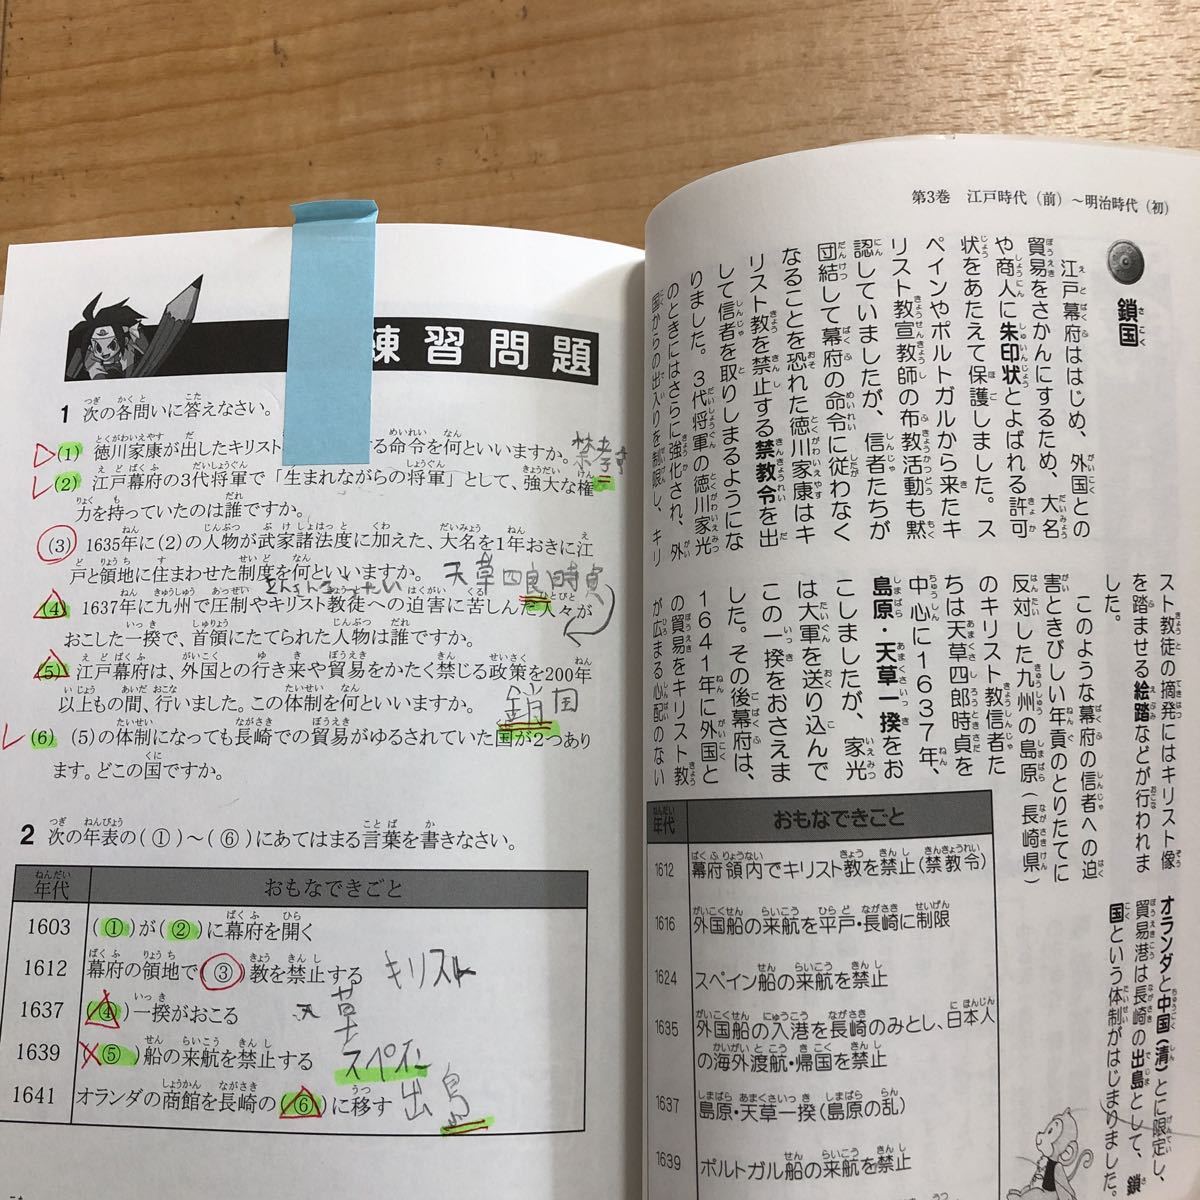 練習問題
1 次の各問いに答えなさい。
(1) 徳川家康が出したキリスト する命令を何といいますか。
禁教
(2) 江戸幕府の3代将軍で「生まれながらの将軍」として、強大な権
力を持っていたのは誰ですか。
(3) 1635年に(2)の人物が武家諸法度に加えた、大名を1年おきに江
戸と領地に住まわせた制度を何といいますか。
天草四良時貞
(4) 1637年に九州で圧制やキリスト教徒への迫害に苦しんだ人々が
おこした一揆で、首領にたてられた人物は誰ですか。
(5) 江戸幕府は、外国との行き来や貿易をかたく禁じる政策を200年
以上もの間、行いました。この体制を何といいますか。
鎖国
(6) (5)の体制になっても長崎での貿易がゆるされていた国が2つあり
ます。どこの国ですか。
2 次の年表の(①)〜(⑥)にあてはまる言葉を書きなさい。
年代 おもなできごと
1603 (①)が(②)に幕府を開く
1612 幕府の領地で(③)教を禁止する キリスト
1637 (④)一揆がおこる 天草
1639 (⑤)船の来航を禁止する スペイン
1641 オランダの商館を長崎の(⑥)に移す 出島
第3巻 江戸時代(前)〜明治時代(初)
鎖国
江戸幕府ははじめ、外国との
貿易をさかんにするため、大名
や商人に朱印状とよばれる許可
状をあたえて保護しました。ス
ペインやポルトガルから来たキ
リスト教宣教師の布教活動も黙
認していましたが、信者たちが
団結して幕府の命令に従わなく
なることを恐れた徳川家康はキ
リスト教を禁止する禁教令を出
して信者を取りしまるようにな
りました。3代将軍の徳川家光
のときにはさらに強化され、外
国からの出入りを制限し、キリ
スト教徒の摘発にはキリスト像
を踏ませる絵踏などが行われま
した。
このような幕府の信者への迫
害ときびしい年貢のとりたてに
反対した九州の島原(長崎県)
のキリスト教信者た
ちは天草四郎時貞を
中心に1637年、
島原・天草一揆をお
こしましたが、家光
は大軍を送り込んで
この一揆をおさえま
した。その後幕府は、
1641年に外国と
の貿易をキリスト教
が広まる心配のない
オランダと中国(清)とに限定し、
貿易港は長崎の出島として、鎖
国という体制がはじまりました。
年代 おもなできごと
1612 幕府領内でキリスト教を禁止(禁教令)
1616 外国船の来航を平戸・長崎に制限
1624 スペイン船の来航を禁止
1635 外国船の入港を長崎のみとし、日本人
の海外渡航・帰国を禁止
1637 島原・天草一揆(島原の乱)
1639 ポルトガル船の来航を禁止